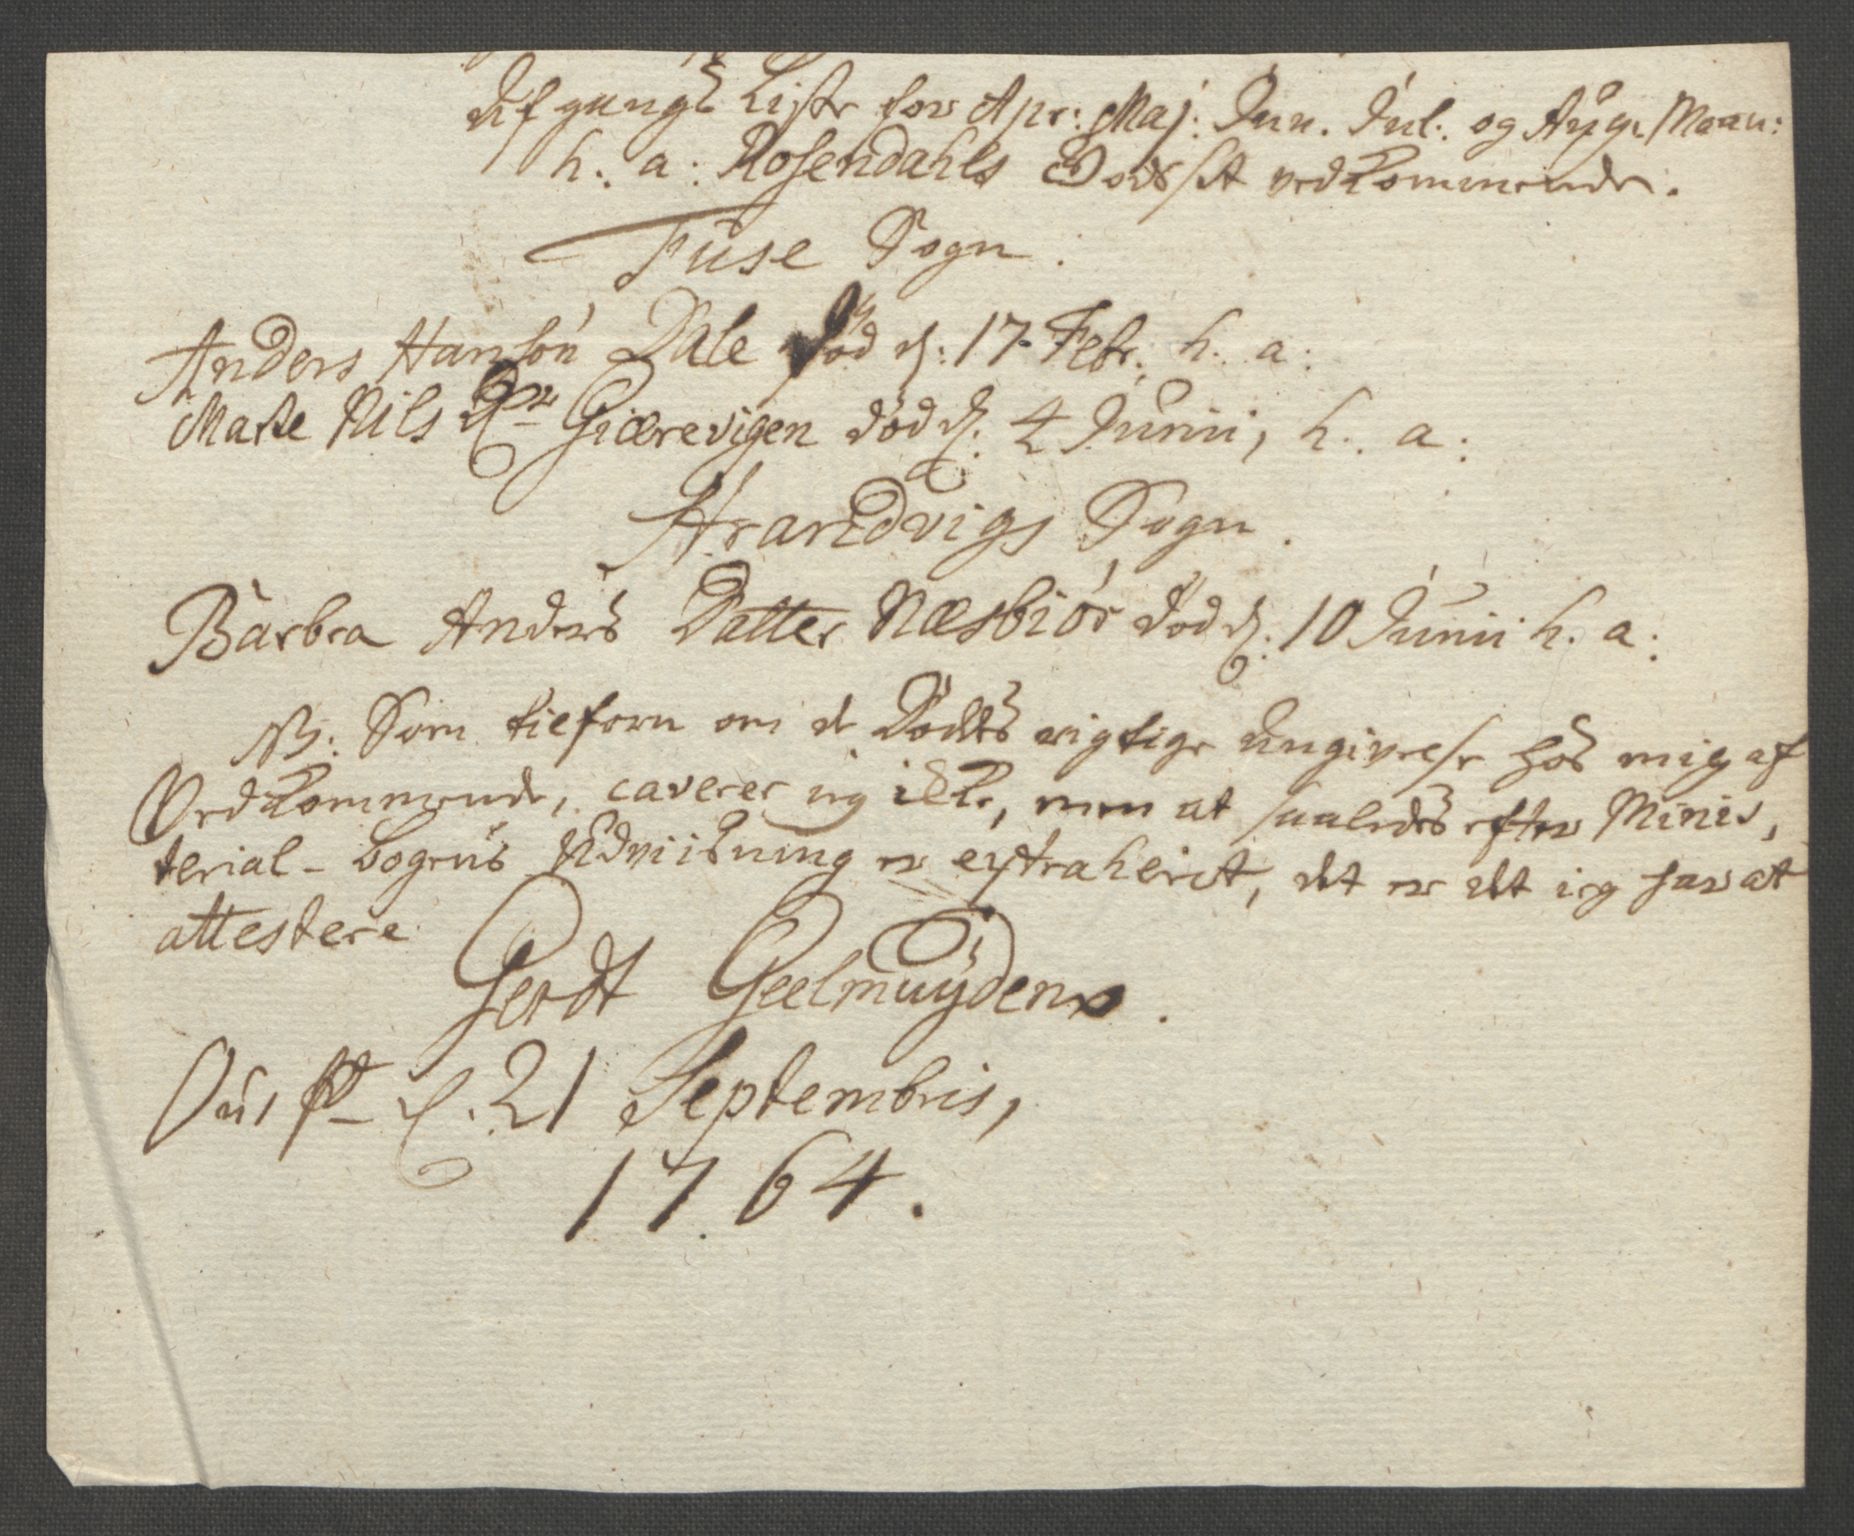 Afgangs Liste for Apr: Maj: Jun. Jul. og Aug. Maan:
h. a: Rosendahls Gods vedkommende.
Fuse Sogn.
Anders Hansøn Dale død d: 17. Febr: h. a:
Marte Nils Dr Giærevigen død d. 4 Junii, h. a:
Strandvigs Sogn.
Barbra Anders Datter Næsbiør død d. 10 Junii h. a:
NB: Som tilforn om de Dødes rigtige Angivelse hos mig af
Vedkommende, caverer jeg ikke, men at saaledes efter Minis,
terial-bogens Udviisning er extraheret, det er det jeg har at
attestere
Gerdt Geelmuÿden.
d. 21 Septembris,
1764.